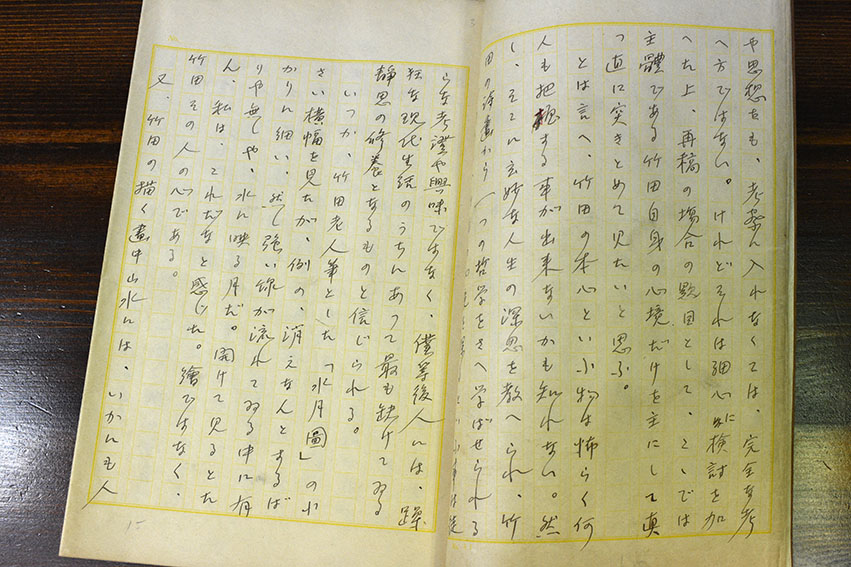 や思想をも、考察に入れなくては、完全な考
へ方ではない。けれどそれは細心に検討を加
へた上、再稿の場合の題目として、こゝでは
主體である竹田自身の心境だけを主にして真
つ直に突きとめて見たいと思ふ。
とは言へ、竹田の本心といふ物は怖らく何
人も把握する事が出来ないかも知れない。然
し、そこに玄妙な人生の深思を教へられ、竹
田の詩畫から一つの哲学をさへ学ばせられる
らな考證や興味ではなく、僕等後人には、躁
狂な現代生活のうちにあつて最も缺けてゐる
静思の修養となるものと信じられる。
いつか、竹田老人筆とした「水月圖」の小
さい横幅を見たが、例の、消えなんとするば
かりに細い、然し強い線が流れてゐる中に有
りや無しや、水に映る月だ。開けて見るとた
ん、私は、これだなと感じた。繪ではなく、
竹田その人の心である。
又、竹田の描く畫中山水には、いかにも人
15